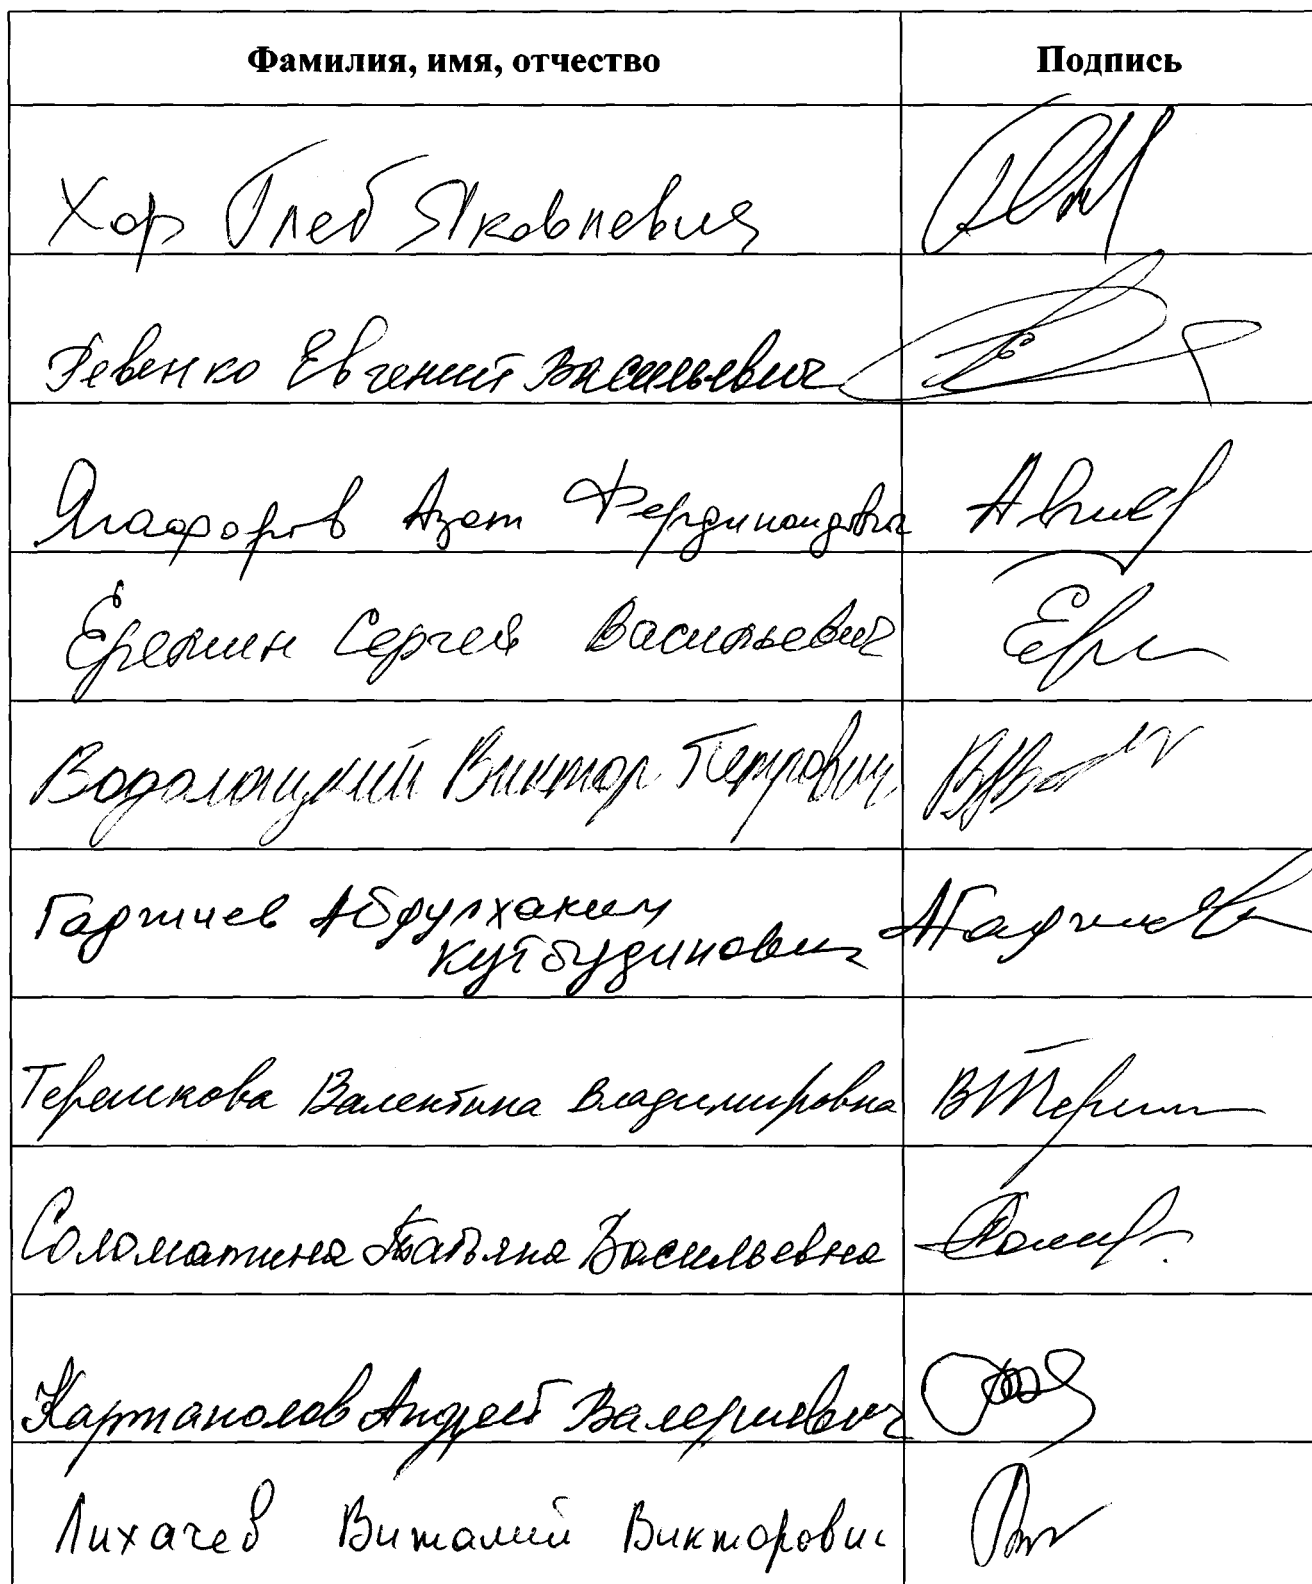 Фамилия, имя, отчество Подпись
Хор Глеб Яковлевич
Ревенко Евгений Васильевич
Ягафаров Азат Фердинандович
Еремин Сергей Васильевич
Водолацкий Виктор Петрович
Гаджиев Абдулхаким
Кутбудинович
Терешкова Валентина Владимировна
Соломатина Татьяна Васильевна
Картаполов Андрей Валериевич
Лихачев Виталий Викторович